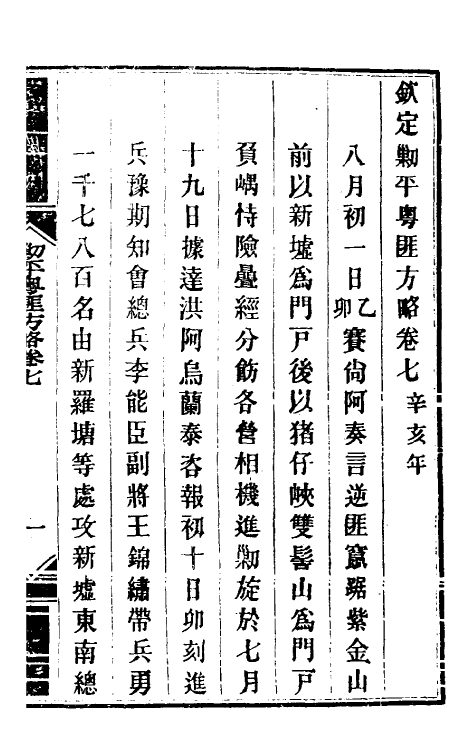 欽定剿平粵匪方略卷七 辛亥年
八月初一日乙卯賽尙阿奏言逆匪竄踞紫金山
前以新墟爲門戸後以猪仔峽雙髻山爲門戸
負嵎恃險疊經分飭各營相機進剿旋於七月
十九日據達洪阿烏蘭泰咨報初十日卯刻進
兵豫期知會總兵李能臣副將王錦繡帶兵勇
一千七八百名由新羅塘等處攻新墟東南總
剿平粵匪方略卷七
一